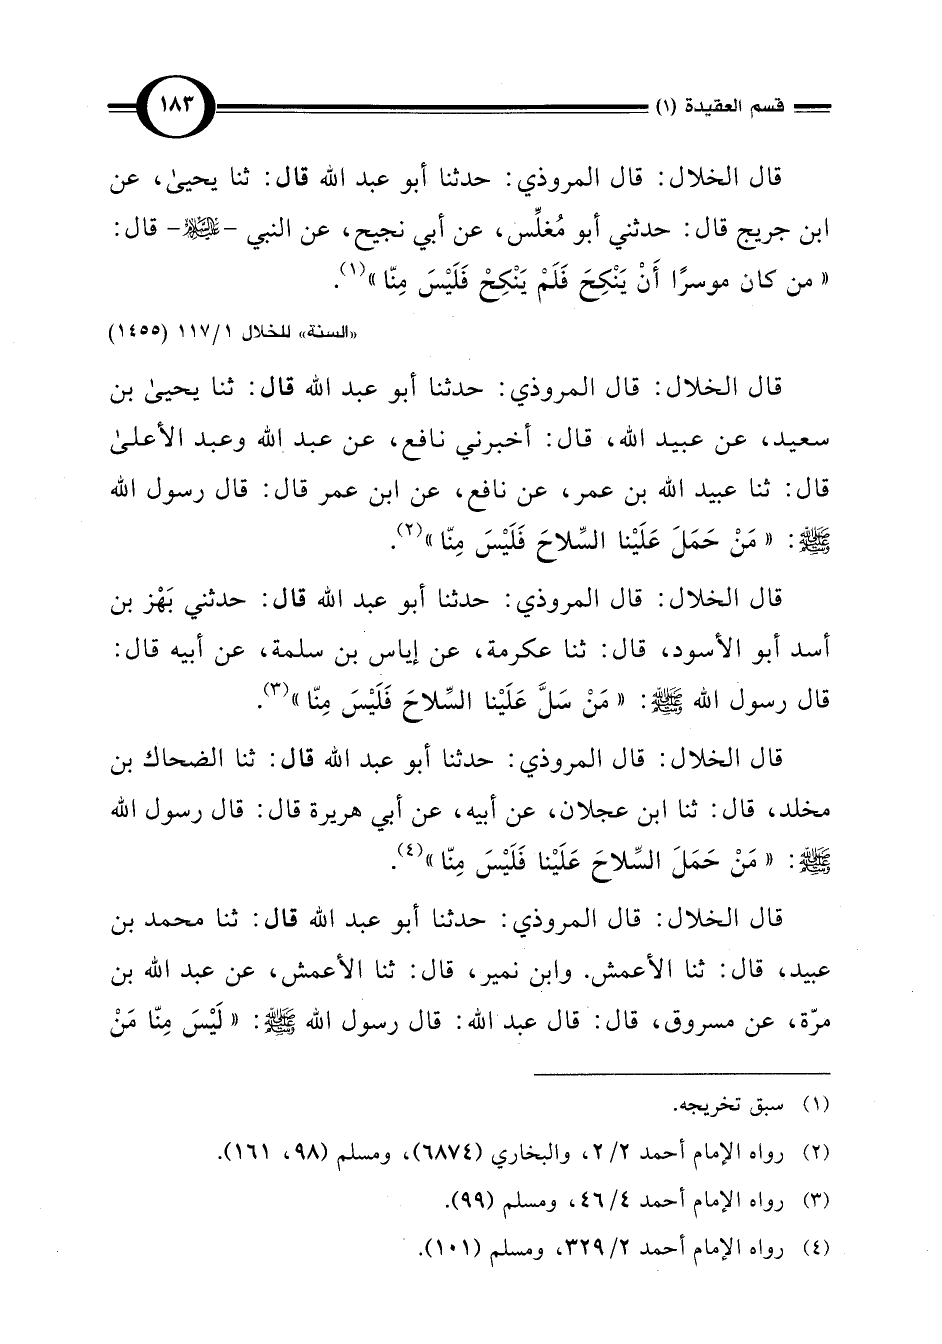 قسم العقيدة (١)
١٨٣
قال الخلال: قال المروذي: حدثنا أبو عبد الله قال: ثنا يحيىٰ، عن
ابن جريج قال: حدثني أبو مُغلِّس، عن أبي نجيح، عن النبي -ﷺ- قال:
« من كان موسرًا أَنْ يَنْكِحَ فَلَمْ يَنْكِحْ فَلَيْسَ مِنّا »(١).
«السنة» للخلال ١/ ١١٧ (١٤٥٥)
قال الخلال: قال المروذي: حدثنا أبو عبد الله قال: ثنا يحيىٰ بن
سعيد، عن عبيد الله، قال: أخبرني نافع، عن عبد الله وعبد الأعلىٰ
قال: ثنا عبيد الله بن عمر، عن نافع، عن ابن عمر قال: قال رسول الله
ﷺ: « مَنْ حَمَلَ عَلَيْنا السِّلاحَ فَلَيْسَ مِنّا »(٢).
قال الخلال: قال المروذي: حدثنا أبو عبد الله قال: حدثني بَهْز بن
أسد أبو الأسود، قال: ثنا عكرمة، عن إياس بن سلمة، عن أبيه قال:
قال رسول الله ﷺ: « مَنْ سَلَّ عَلَيْنا السِّلاحَ فَلَيْسَ مِنّا »(٣).
قال الخلال: قال المروذي: حدثنا أبو عبد الله قال: ثنا الضحاك بن
مخلد، قال: ثنا ابن عجلان، عن أبيه، عن أبي هريرة قال: قال رسول الله
ﷺ: « مَنْ حَمَلَ السِّلاحَ عَلَيْنا فَلَيْسَ مِنّا »(٤).
قال الخلال: قال المروذي: حدثنا أبو عبد الله قال: ثنا محمد بن
عبيد، قال: ثنا الأعمش. وابن نمير، قال: ثنا الأعمش، عن عبد الله بن
مرّة، عن مسروق، قال: قال عبد الله: قال رسول الله ﷺ: « لَيْسَ مِنّا مَنْ
(١) سبق تخريجه.
(٢) رواه الإمام أحمد ٢/ ٢، والبخاري (٦٨٧٤)، ومسلم (٩٨، ١٦١).
(٣) رواه الإمام أحمد ٤/ ٤٦، ومسلم (٩٩).
(٤) رواه الإمام أحمد ٢/ ٣٢٩، ومسلم (١٠١).